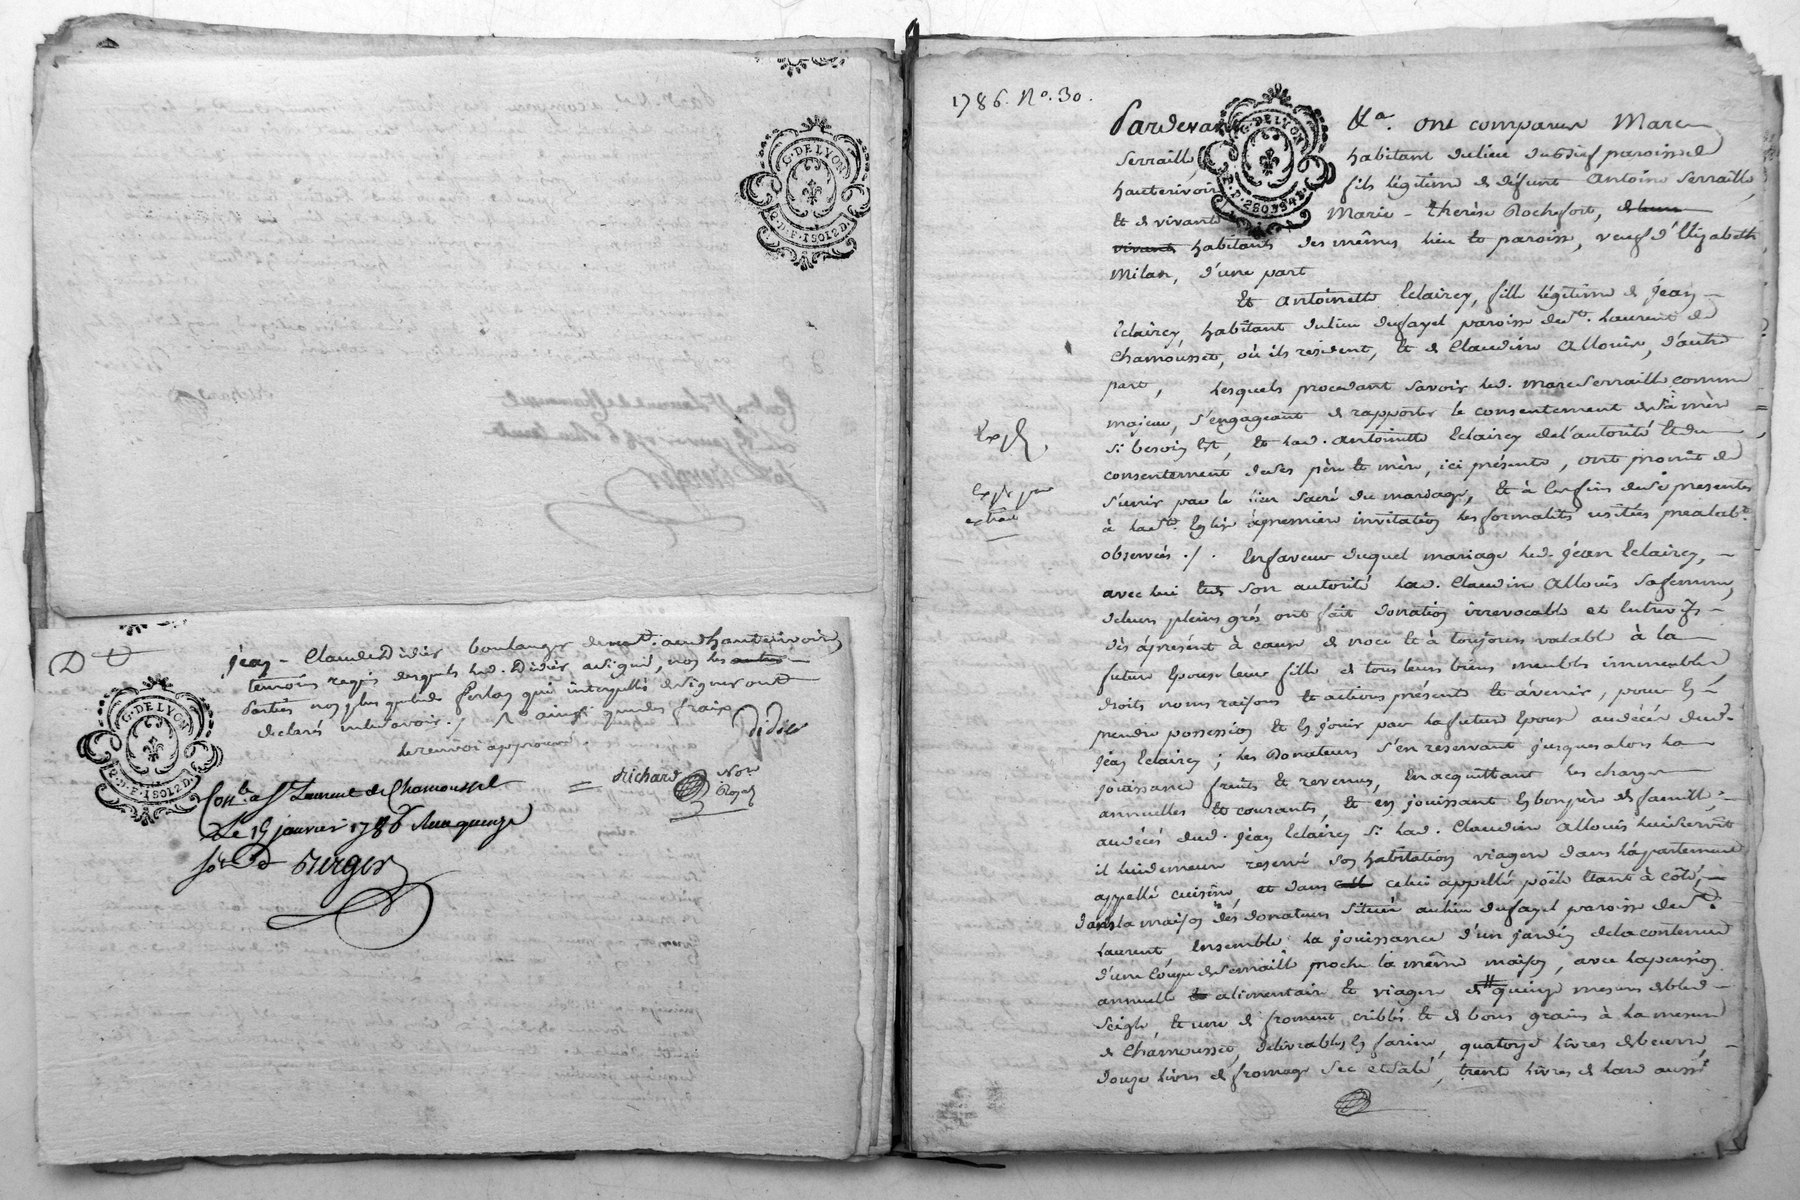 G. DE LYON
P. D. F. 1S012D.
D
jean Claude Didier boulanger demt. aud hauterivoire
temoins requis desquels led. Didier a signé, non les autres
parties non plus que led. qui interpellés de signer ont
declaré ne le savoir. / ainsi que des frais
le renvoi approuvé
Didier
richard Nore.
Royal
G. DE LYON
P. D. F. 1S012D.
Conlé a St Laurent de Chamousset
Le 15 janvier 1786 Reçu quinze s
Berger
1786. No. 30.
Pardevant &a. ont comparus Marc
Serraille, habitant du lieu du paroisse de
hauterivoire fils légitime de défunt Antoine Serraille,
et de vivante Marie-therèse Rochefort, de leur
vivant habitants des mêmes lieu et paroisse, veuf d'Elizabeth
Milan, d'une part
G. DE LYON
Et Antoinette Eclaircy, fille légitime de jean
Eclaircy habitant du lieu dufayel paroisse de st. Laurent de
Chamousset, où ils resident, et de Claudine Allouis, d'autre
part, Lesquels procedant savoir led. marc Serraille comme
majeur, s'engageant de rapporter le consentement de sa mère
si besoin est, et lad. antoinette Eclaircy de l'autorité et du
consentement de ses père et mère, ici présents, ont promit de
s'unir par le lien sacré du mariage, et à les fins de se presenter
à la ste. Eglise à première invitation les formalités usitées prealabt.
observées ./. En faveur duquel mariage led. jean Eclaircy,
avec lui et de son autorité lad. Claudine Allouis sa femme,
de leurs pleins grés ont fait donation irrevocable et entrevifs
dès àprésent à cause de noce et à toujours valable à la
future Epouse leur fille, de tous leurs biens meubles immeubles,
droits noms raisons et actions présents et àvenir, pour en
prendre possession et en jouir par la future Epouse au décès dud.
jean Eclaircy; les Donateurs s'en reservant jusques alors la
jouissance fruits et revenus, En acquittant les charges
annuelles et courants, et en jouissant en bon père de famille;
au décés dud. jean Eclaircy si lad. Claudine Allouis lui survit
il lui demeure reservé son habitation viagère dans l'àpartement
appellé cuisine, et dans celui appellé poële étant à côté,
dans la maison des donateurs située au lieu dufayel paroisse de st.
Laurent, Ensemble la jouissance d'un jardin de la contenue
d'une coupe de semaille proche la même maison, avec la pension
annuelle et alimentaire et viagère de quinze mesures de bled
seigle, et une de froment criblés et de bons grains à la mesure
de Chamousset, délivrables en farine, quatorze livres de beurre,
douze livres de fromage sec et salé, trente livres de lard aussi